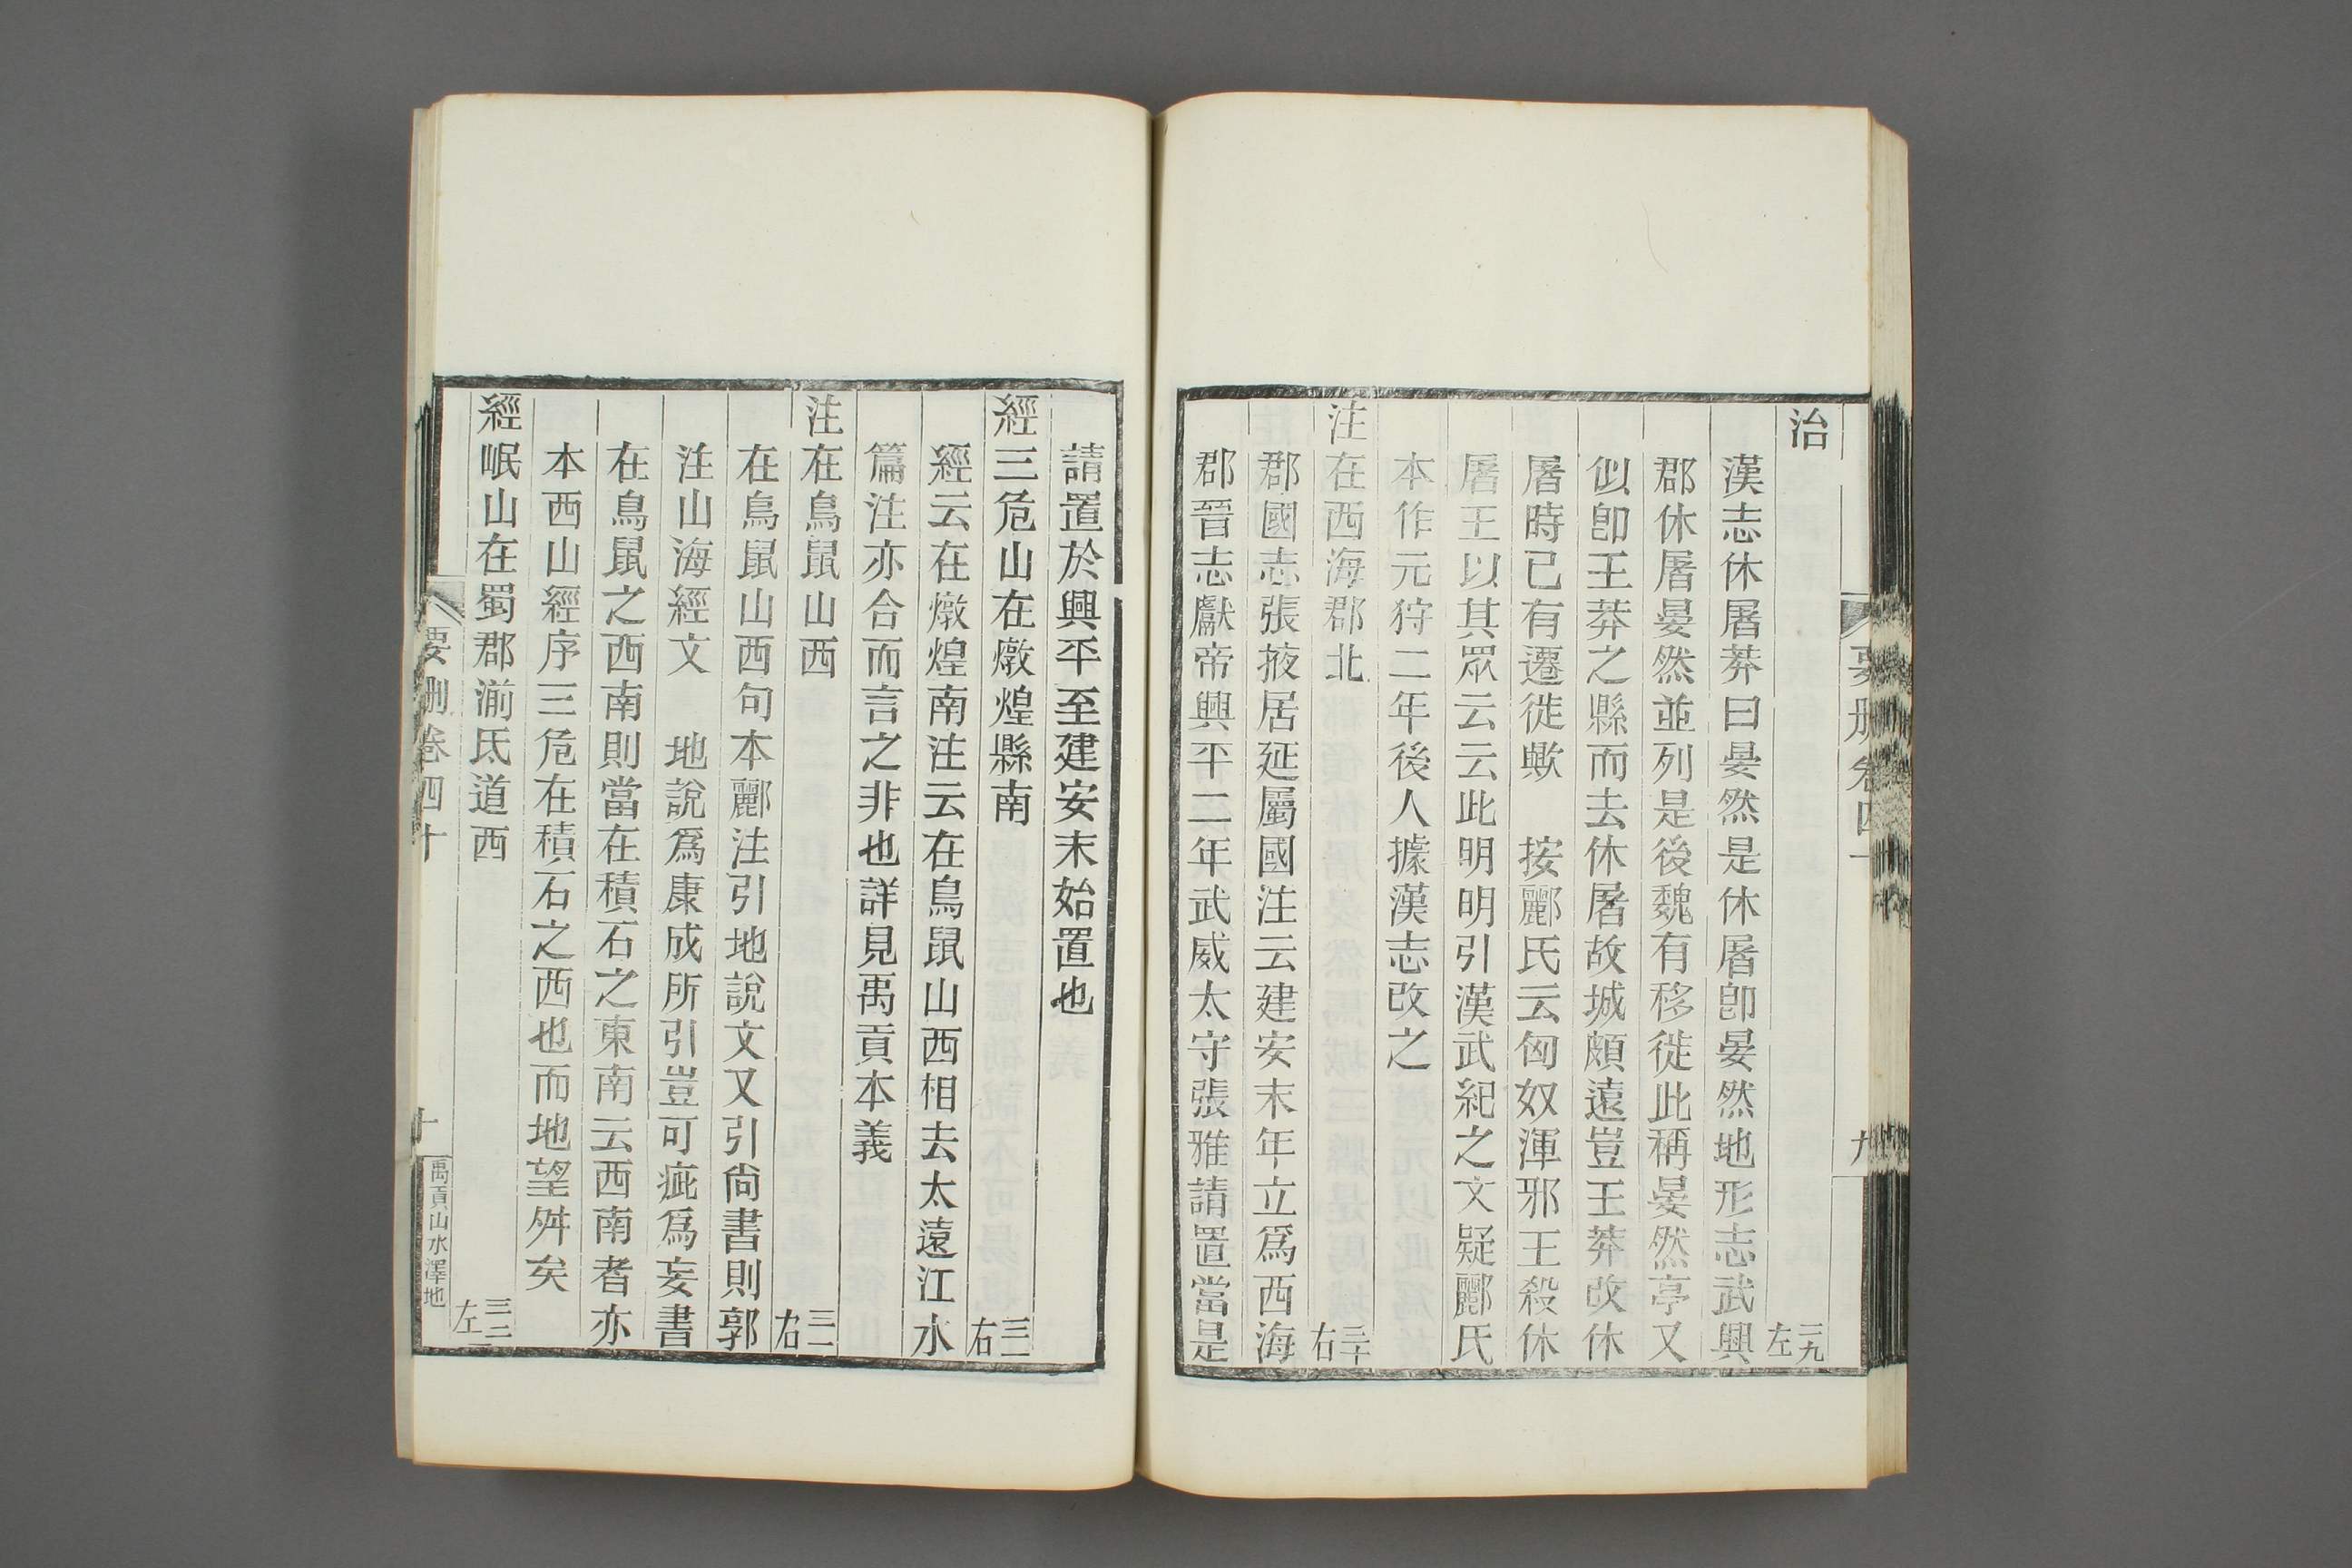 治 二九左
漢志休屠莽曰晏然是休屠卽晏然地形志武興
郡休屠晏然並列是後魏有移徙此稱晏然亭又
似卽王莽之縣而去休屠故城頗遠豈王莽改休
屠時已有遷徙歟 按酈氏云匈奴渾邪王殺休
屠王以其眾云云此明明引漢武紀之文疑酈氏
本作元狩二年後人據漢志改之
注在西海郡北 三十右
郡國志張掖居延屬國注云建安末年立爲西海
郡晉志獻帝興平二年武威太守張雅請置當是
請置於興平至建安末始置也
經三危山在燉煌縣南 三一右
經云在燉煌南注云在鳥鼠山西相去太遠江水
篇注亦合而言之非也詳見禹貢本義
注在鳥鼠山西 三一右
在鳥鼠山西句本酈注引地說文又引尙書則郭
注山海經文 地說爲康成所引豈可疵爲妄書
在鳥鼠之西南則當在積石之東南云西南者亦
本西山經序三危在積石之西也而地望舛矣
經岷山在蜀郡湔氐道西 三二左
要刪卷四十 十 禹貢山水澤地